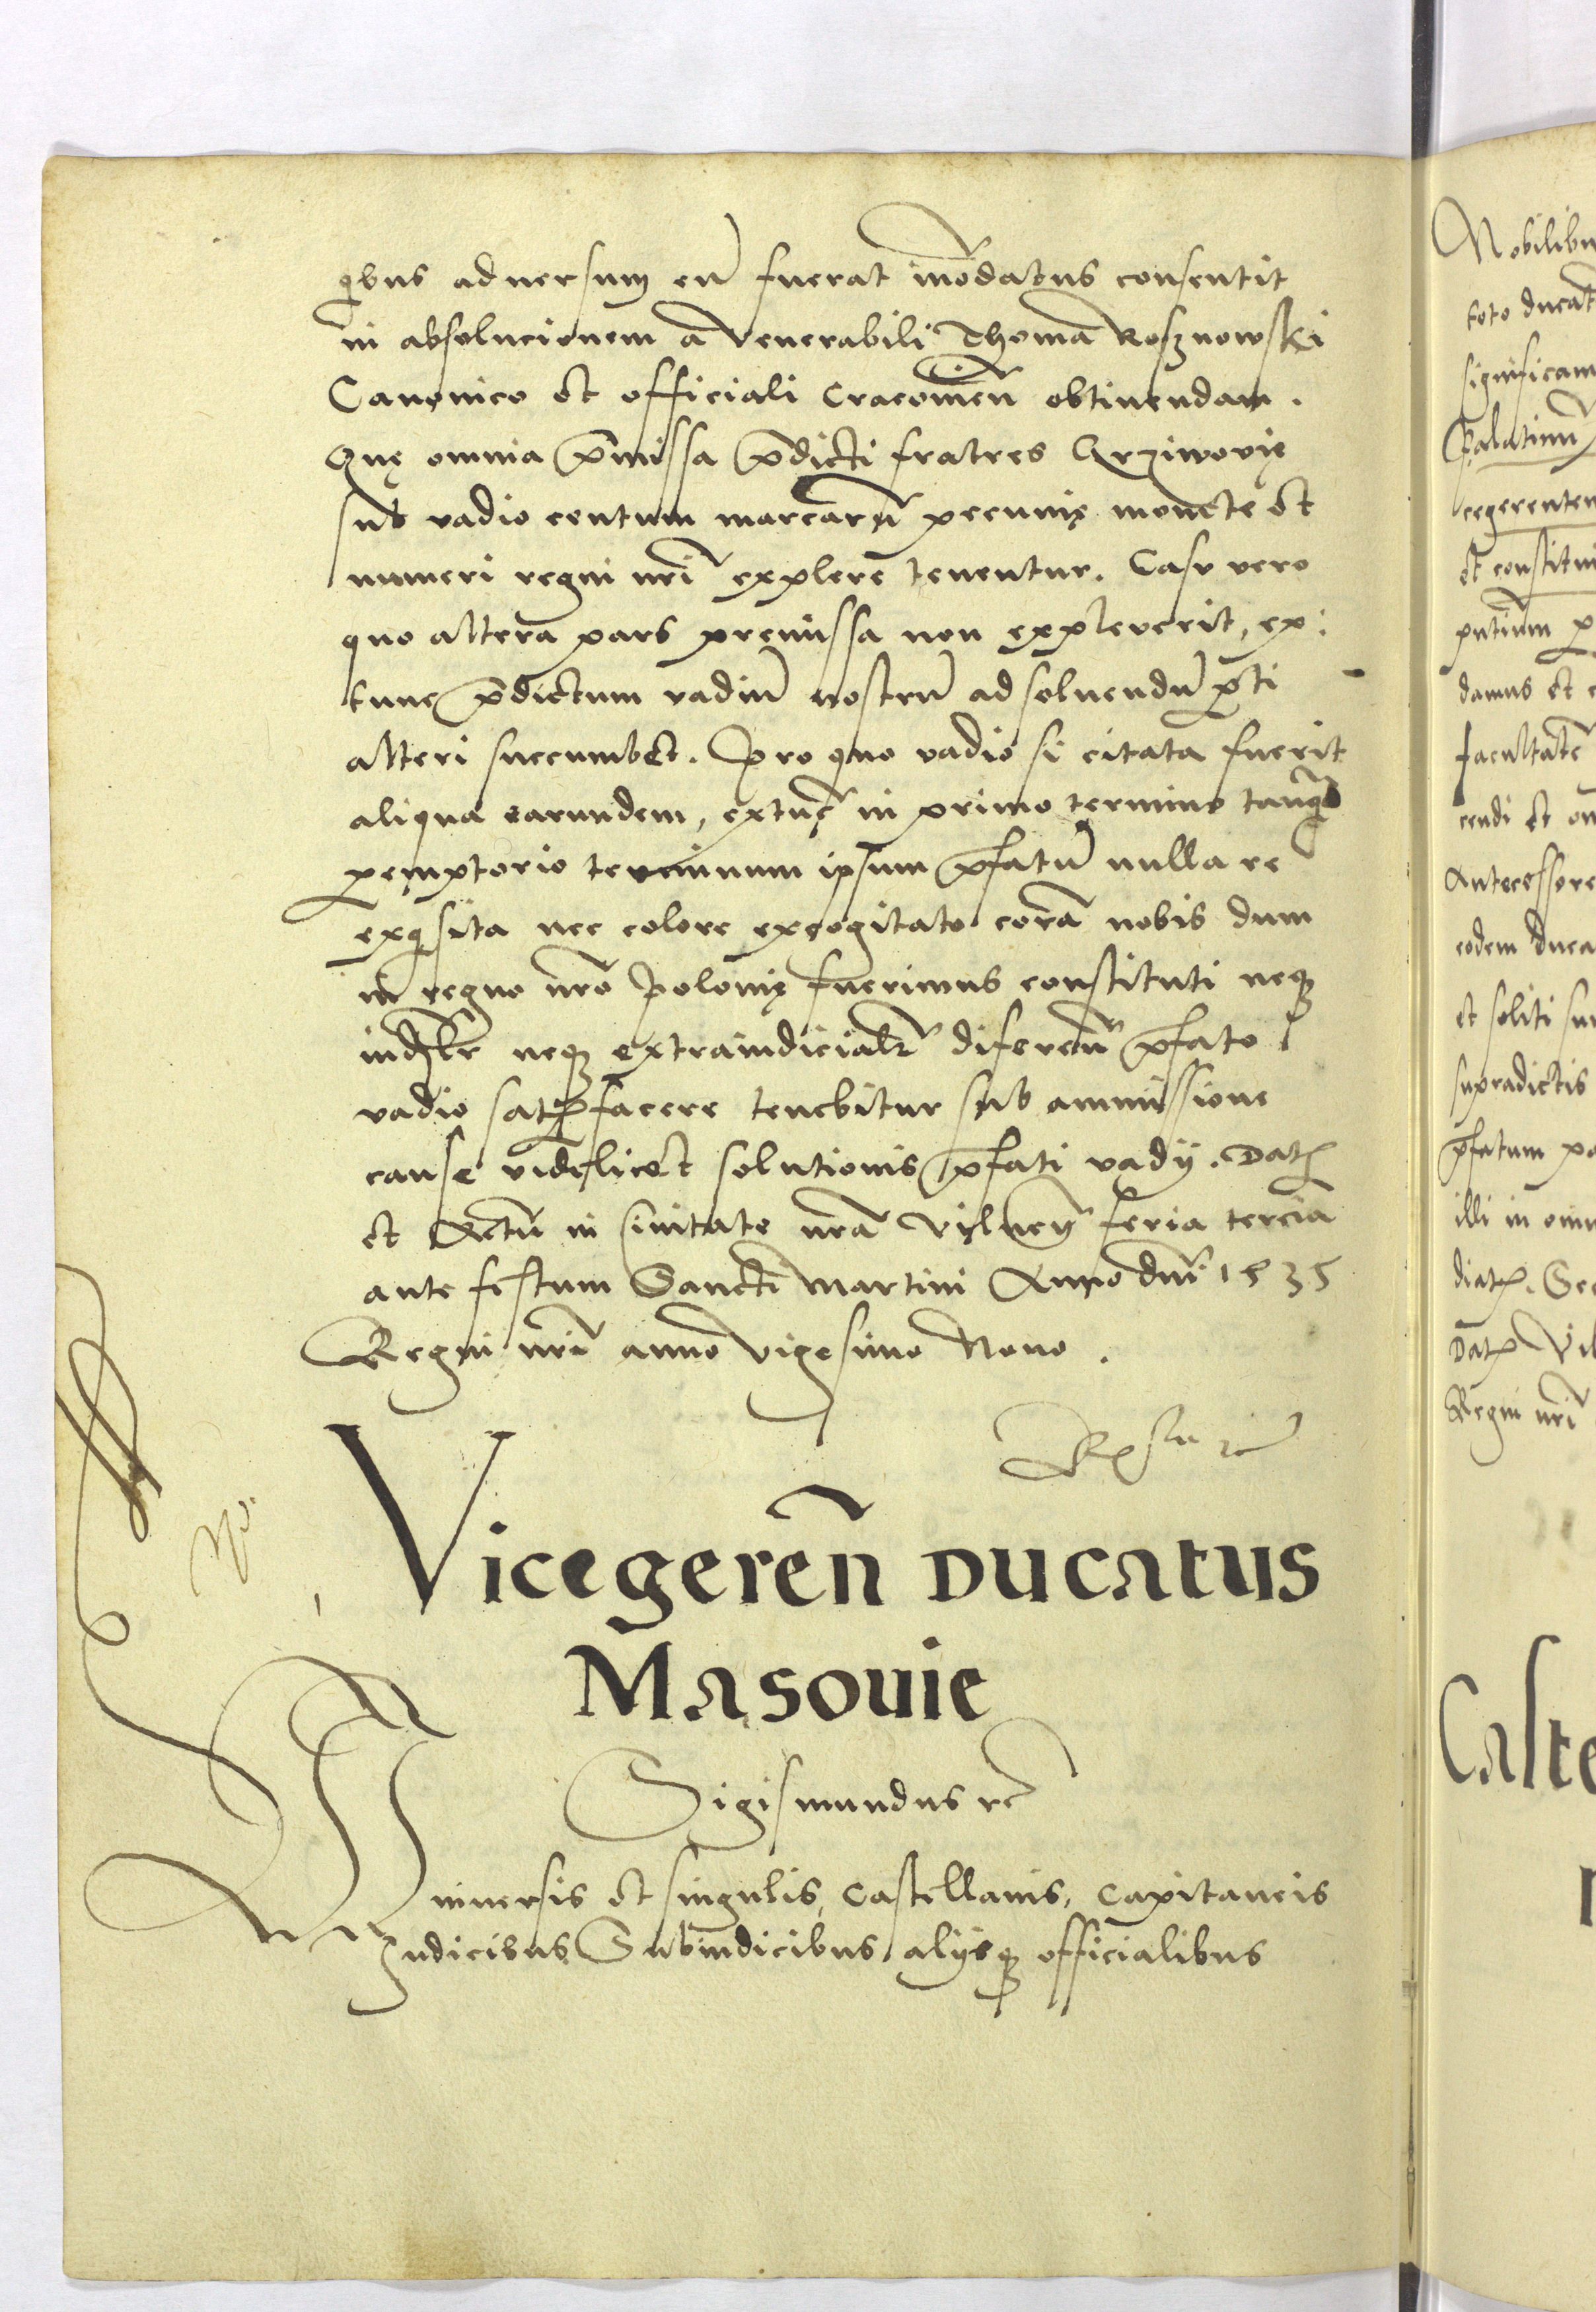 qbus adversum eū fuerat iñodatus consentit
in absolucionem a venerabili Thoma Rosznowski
Canonico et officiali Cracovieñ obtinendam.
Quę omnia p̄missa p̄dicti fratres
sub vadio centum marcarū pecunię monete et
numeri regni nr̄i explere tenentur. Casu vero
quo altera pars premissa non expleverit, ex:
tunc p̄dictum vadiū nostrū ad solvendū p̱ti
alteri succumbet. Pro quo vadio si citata fuerit
aliqua earundem, extūc in primo termino tanq̄
p̱emptorio terminum ipsum p̄fatū nulla re
exqsita nec colore excogitato corā nobis dum
in regno nr̄o Polonię fuerimus constituti neqꝫ
neqꝫ extraiudicialr̄ difereñ p̄fato
vadio satisfacere tenebitur sub ammissione
cause videlicet solutionis p̄fati vadÿ. Datꝭ
et Actū in Civitate nr̄a Vilneñ feria tercia
ante festum Sancti Martini Anno dn̄i 1535
Regni nr̄i anno vigesimo Nono.
Vicegereñ Ducatus
Masovie
Sigismundus rc̄
Universis et singulis, Castellanis, Capitaneis
Judicibus Subiudicibus alÿsqꝫ officialibus
Nobilibu
toto ducat
significam
Palatinū
cegerenten
et constitui
damus et
facultatē
cendi et om
Antecessore
eodem duca
et soliti su
supradictis
p̄fatum po
illi in omn
Datꝭ Vil
Regni nr̄i
Caste